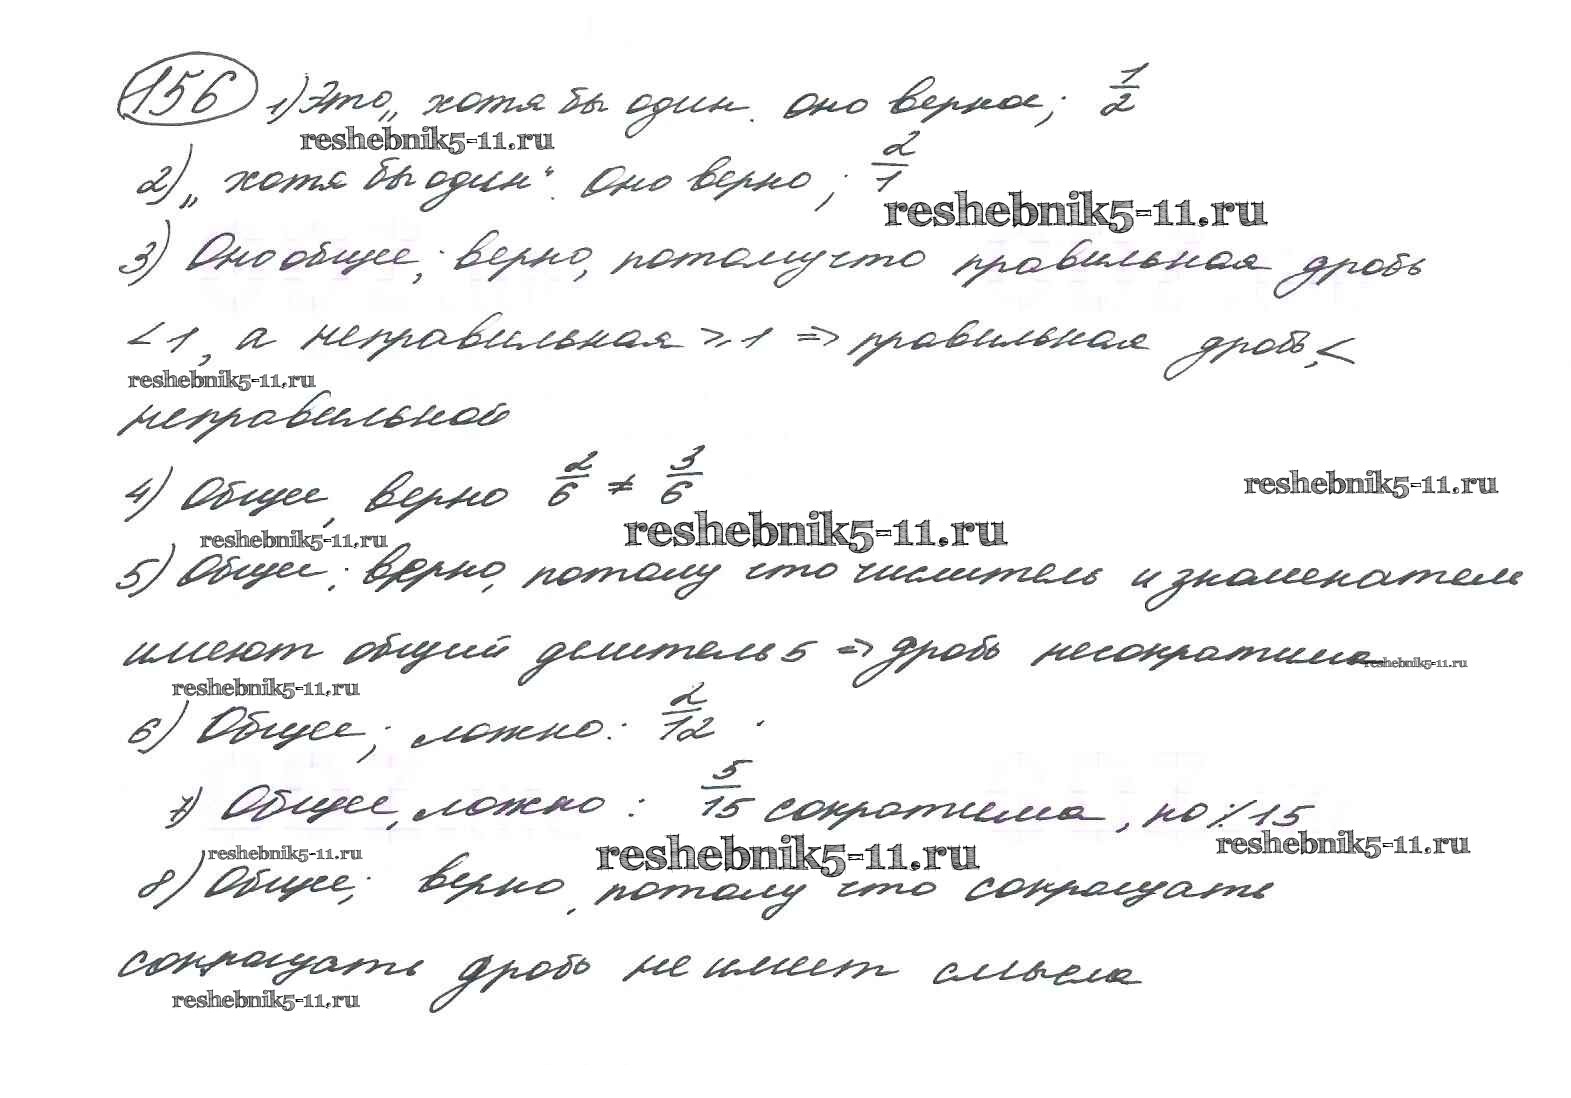 156 1) Это „хотя бы один. Оно верное; 1/2
reshebnik5-11.ru
2) „хотя бы один“. Оно верно; 2/1
reshebnik5-11.ru
3) Оно общее; верно, потому что правильная дробь
< 1, а неправильная ≥ 1 => правильная дробь, <
reshebnik5-11.ru
неправильной
4) Общее, верно 2/6 ≠ 3/6
reshebnik5-11.ru
reshebnik5-11.ru
reshebnik5-11.ru
5) Общее; верно, потому что числитель и знаменатель
имеют общий делитель 5 => дробь несократима
reshebnik5-11.ru
reshebnik5-11.ru
6) Общее; ложно: 2/12.
7) Общее, ложно: 5/15 сократима, но ٪ 15
reshebnik5-11.ru
reshebnik5-11.ru
reshebnik5-11.ru
8) Общее; верно, потому что сокращать
сокращать дробь не имеет смысла
reshebnik5-11.ru